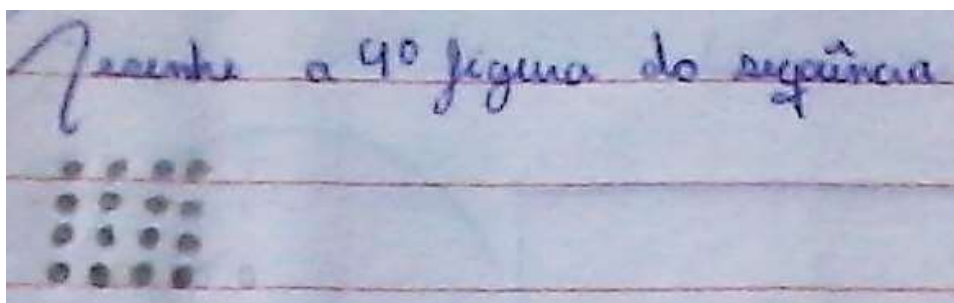 Desenhe a 4º figura da seqüência